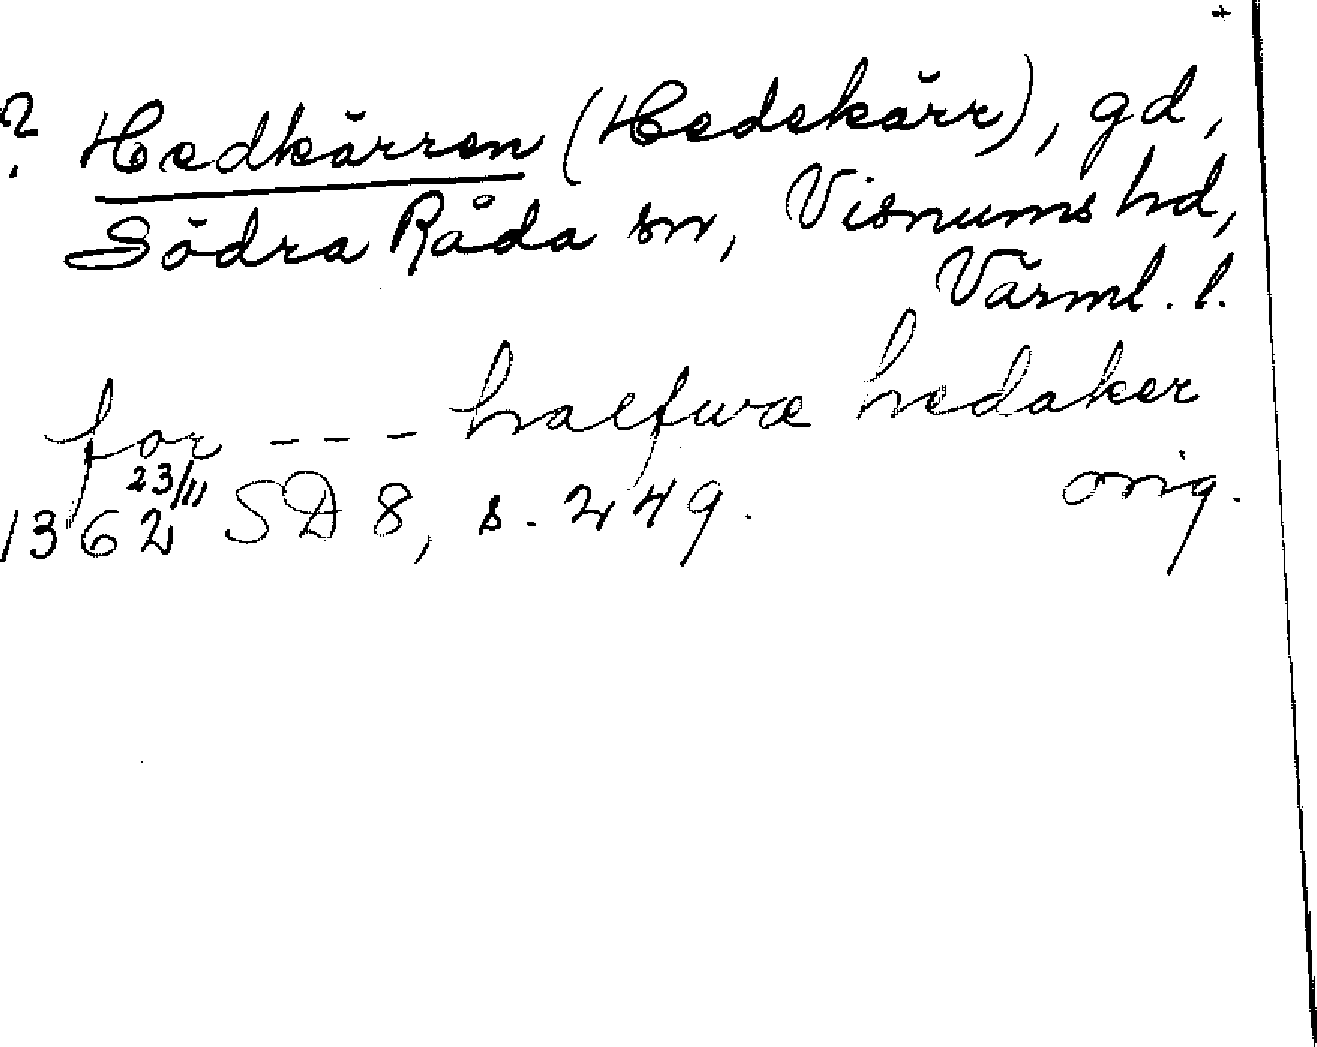 +
? Hedkärren (Hedekärr), gd,
Södra Råda sn, Visnums hd,
Värml. l.
for --- halfwæ hedaker
1362 23/11 SD 8, s. 249. orig.